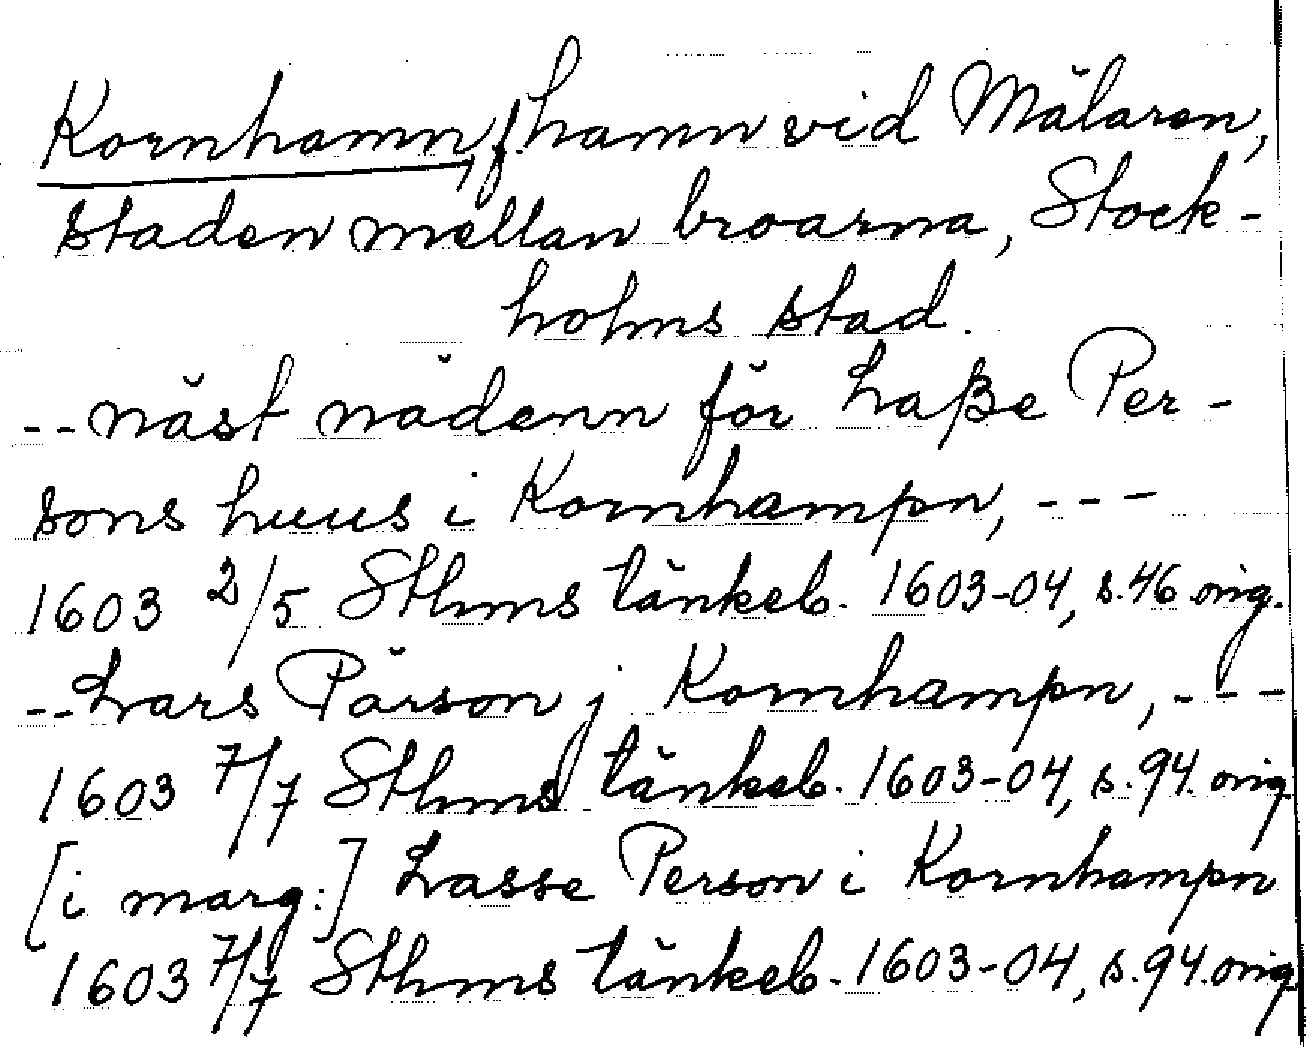 Kornhamn, f. hamn vid Mälaren,
staden mellan broarna, Stock-
holms stad.
--näst nädenn för Laße Per-
sons huus i Kornhampn, ---
1603 2/5 Sthms tänkeb. 1603-04, s.46 orig.
--Lars Pärson j Kornhampn, ---
1603 7/7 Sthms tänkeb. 1603-04, s.94. orig
[i marg:] Lasse Person i Kornhampn
1603 7/7 Sthms tänkeb. 1603-04, s.94. orig